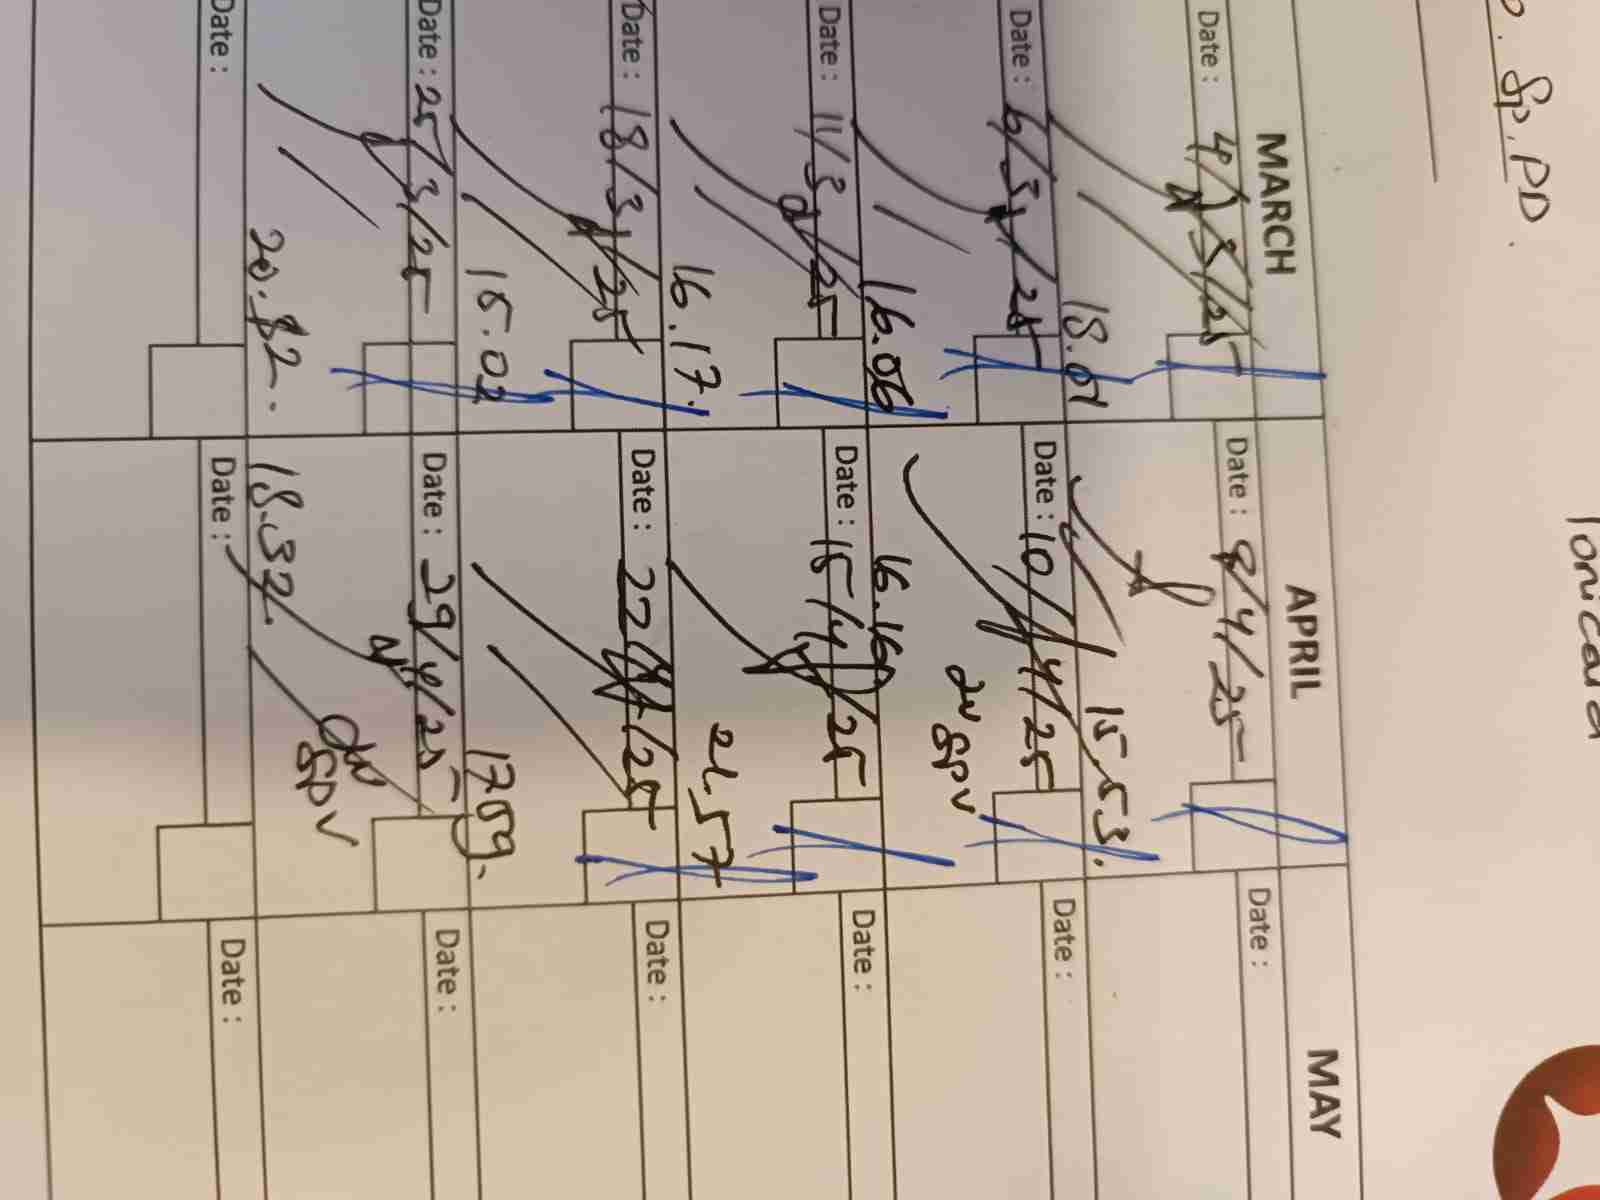 Sp.PD.
MARCH APRIL MAY
Date : 4/3/25 Date : 8/4/25 Date :
18.01 15.53.
Date : 6/3/25 Date : 10/4/25 Date :
16.06 16.16 Spv
Date : 11/3/25 Date : 15/4/25 Date :
16.17. 21.57
Date : 18/3/25 Date : 22/4/25 Date :
15.02 1709.
Date : 25/3/25 Date : 29/4/25 Date :
18.32. Spv
Date : Date : Date :